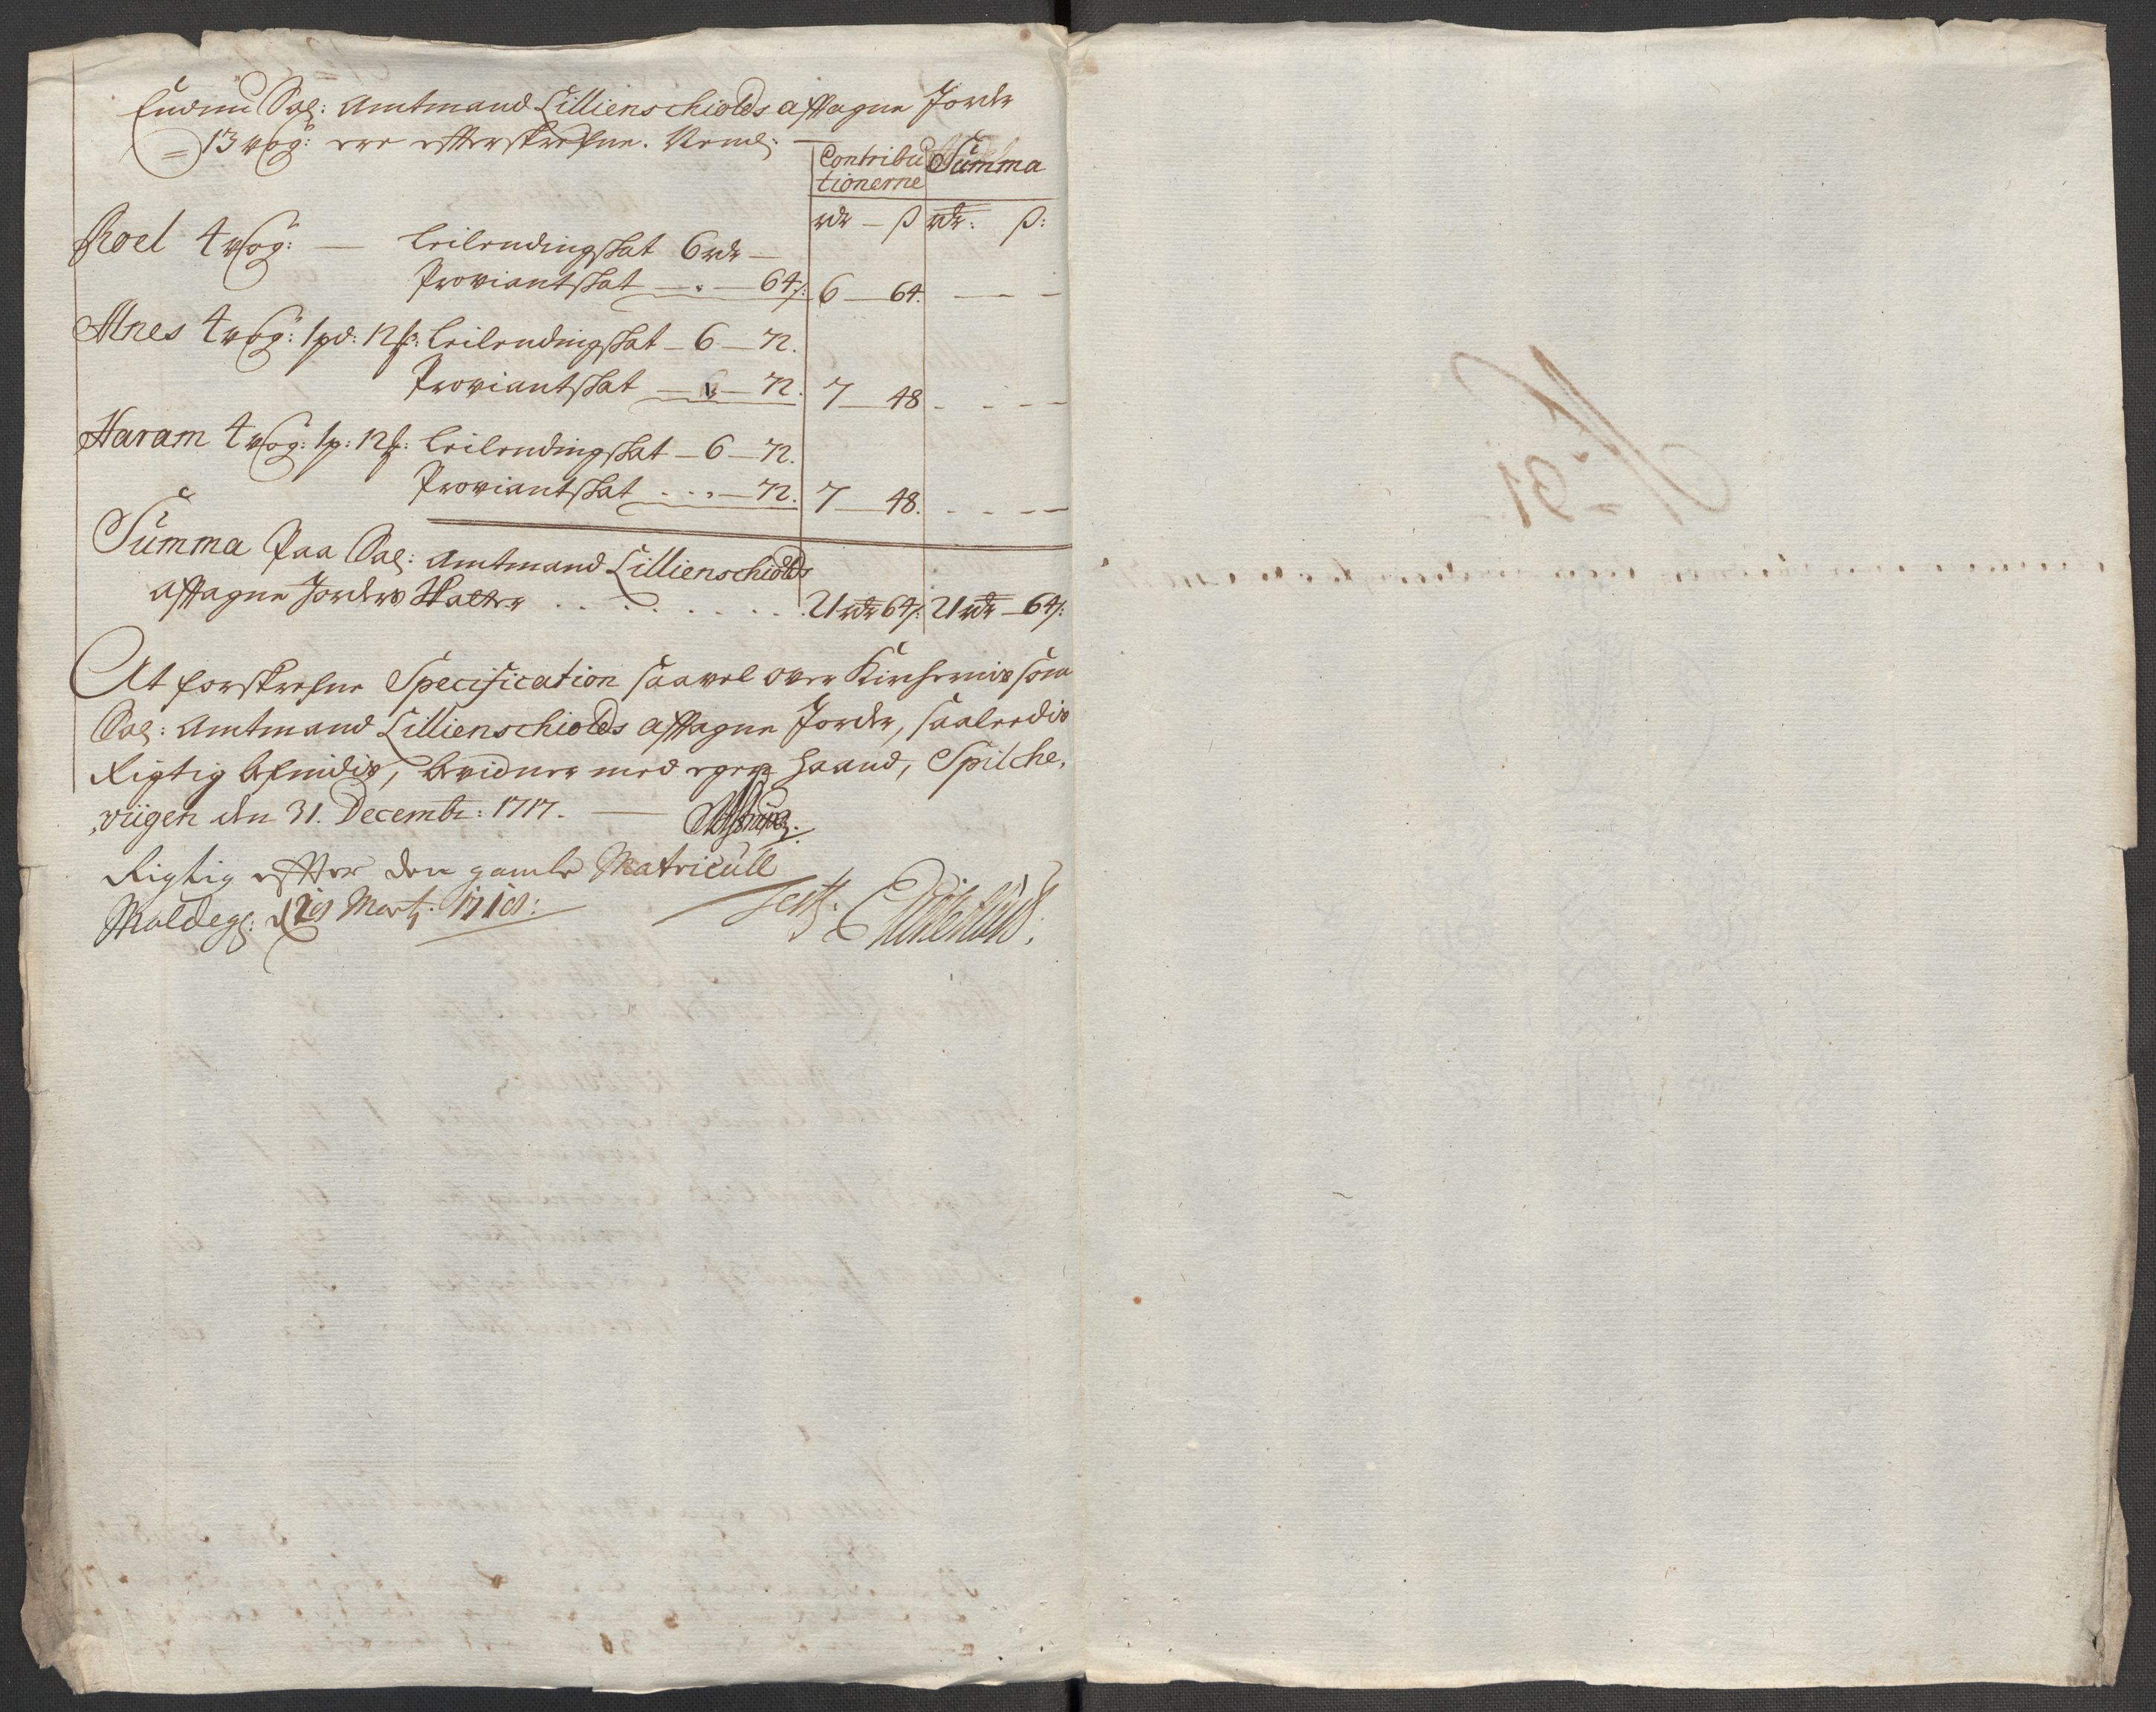 Endnu Sal: Amtmand Lillienschiolds afftagne Jorder
= 13 wog: ere efterskrefne. Neml:
Contribu Summa
tionerne
rdr — ß rdr: ß:
Roel 4 wog: — Leilendingskat 6 rdr —
Proviantskat — " — 64 ß: 6 — 64. — — —
Alnes 4 wog: 1 pd: 12 ß: Leilendingskat — 6 — 72.
Proviantskat — " — 72. 7 — 48 - - - —
Haram 4 wog: 1 p: 12 ß: Leilendingskat — 6 — 72.
Proviantskat . . " — 72. 7 — 48. - - - —
Summa paa Sal: Amtmand Lillienschiolds
afftagne Jorders Skatter . . . . . . . . 21 rdr 64 ß: 21 rdr — 64 ß:
At forskrefne Specification saavel over Kirchernis som
Sal: Amtmand Lillienschiolds afftagne Jorder, saaledis
Rigtig befindis, bevidner med egen Haand, Spilche,
,viigen den 31. Decembr: 1717. —
Rigtig effter den gamle Matricull
Moldeg: d Mart: 1718:
Test.
N 31